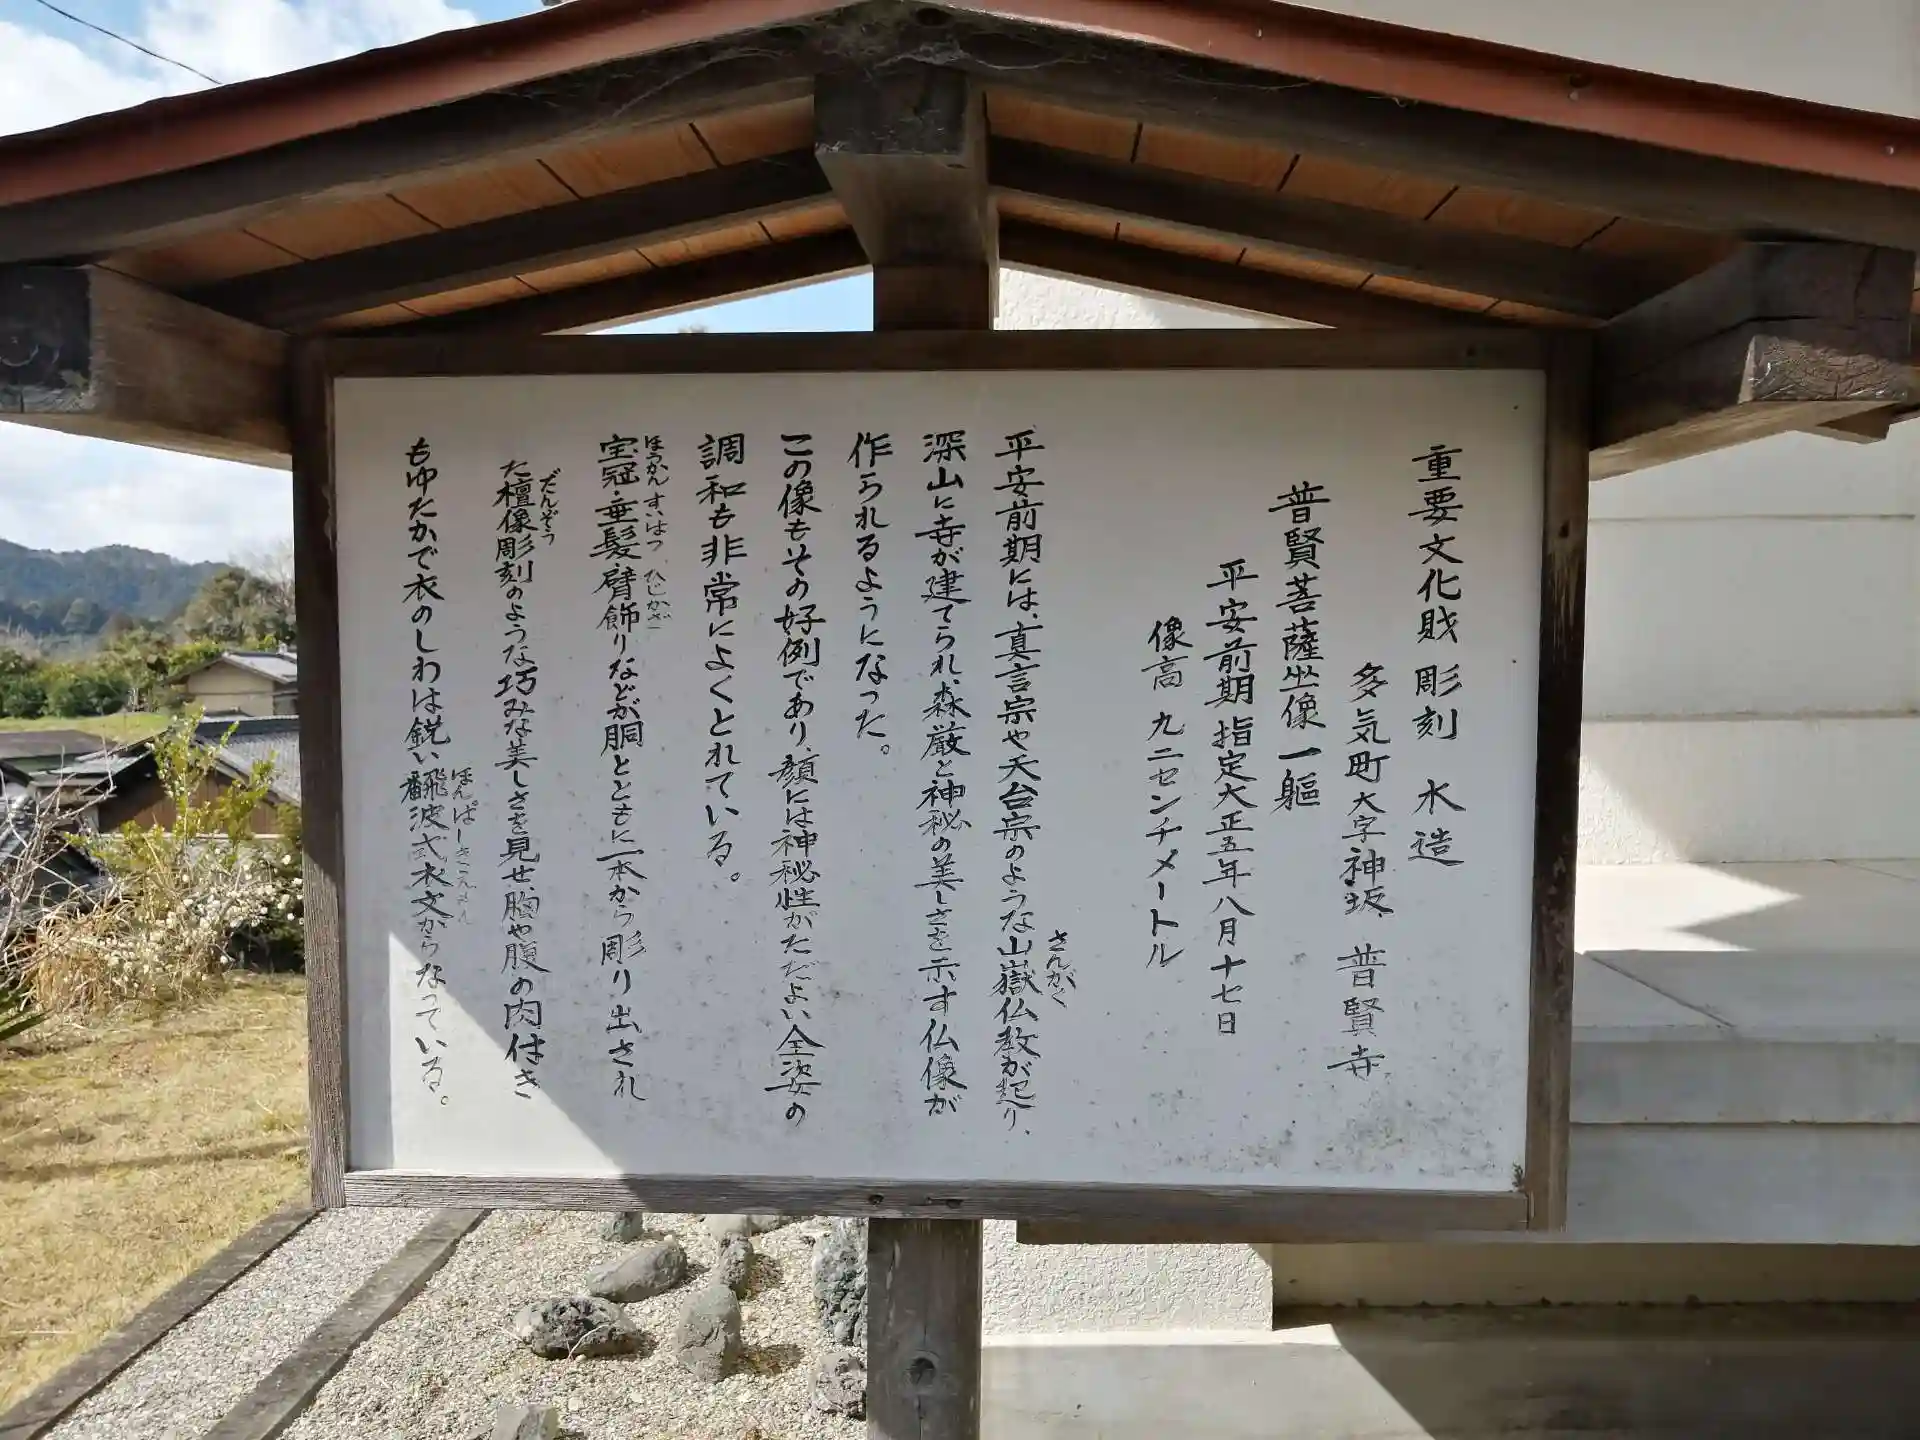 重要文化財 彫刻 木造
多気町大字神坂、普賢寺
普賢菩薩坐像 一躯
平安前期 指定大正五年八月十七日
像高 九二センチメートル
平安前期には、真言宗や天台宗のような山嶽仏教が起り、
さんがく
深山に寺が建てられ、森厳と神秘の美しさを示す仏像が
作られるようになった。
この像もその好例であり、顔には神秘性がただよい全姿の
調和も非常によくとれている。
ほうかん すいはつ、ひじかざ
宝冠・垂髪・臂飾りなどが胴とともに一本から彫り出され
だんぞう
た檀像彫刻のような巧みな美しさを見せ、胸や腹の肉付き
ほんぱしきえもん
もゆたかで衣のしわは鋭い飜波式衣文からなっている。